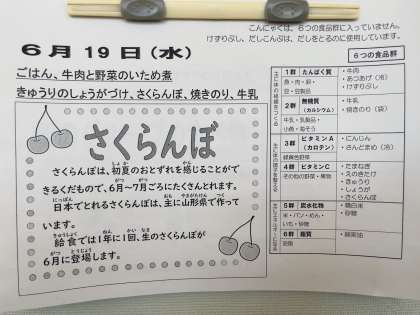 こんにゃくは、6つの食品群に入っていません。
けずりぶし、だしこんぶは、だしをとるのに使用しています。
6月19日(水)
6つの食品群
ごはん、牛肉と野菜のいため煮
きゅうりのしょうがづけ、さくらんぼ、焼きのり、牛乳
さくらんぼ
さくらんぼは、初夏のおとずれを感じることが
しょか
かん
できるくだもので、6月~7月ごろにたくさんとれます。
がつ
がつ
日本でとれるさくらんぼは、主に山形県で作って
にっぽん
おも
やまがたけん
つく
います。
給食では1年に1回、生のさくらんぼが
きゅうしょく
ねん
かい
なま
6月に登場します。
がつ
とうじょう
1群 たんぱく質
魚・肉・卵・
豆・豆製品
・牛肉
・あつあげ(冷)
・けずりぶし
2群 無機質
(カルシウム)
牛乳・乳製品・
小魚・海そう
・牛乳
・焼きのり(袋)
3群 ビタミンA
(カロテン)
緑黄色野菜
・にんじん
・さんどまめ(冷)
4群 ビタミンC
その他の野菜・果物
・たまねぎ
・えのきたけ
・きゅうり
・しょうが
・さくらんぼ
5群 炭水化物
米・パン・めん・
いも・砂糖
・精白米
・砂糖
6群 脂質
油脂
・綿実油